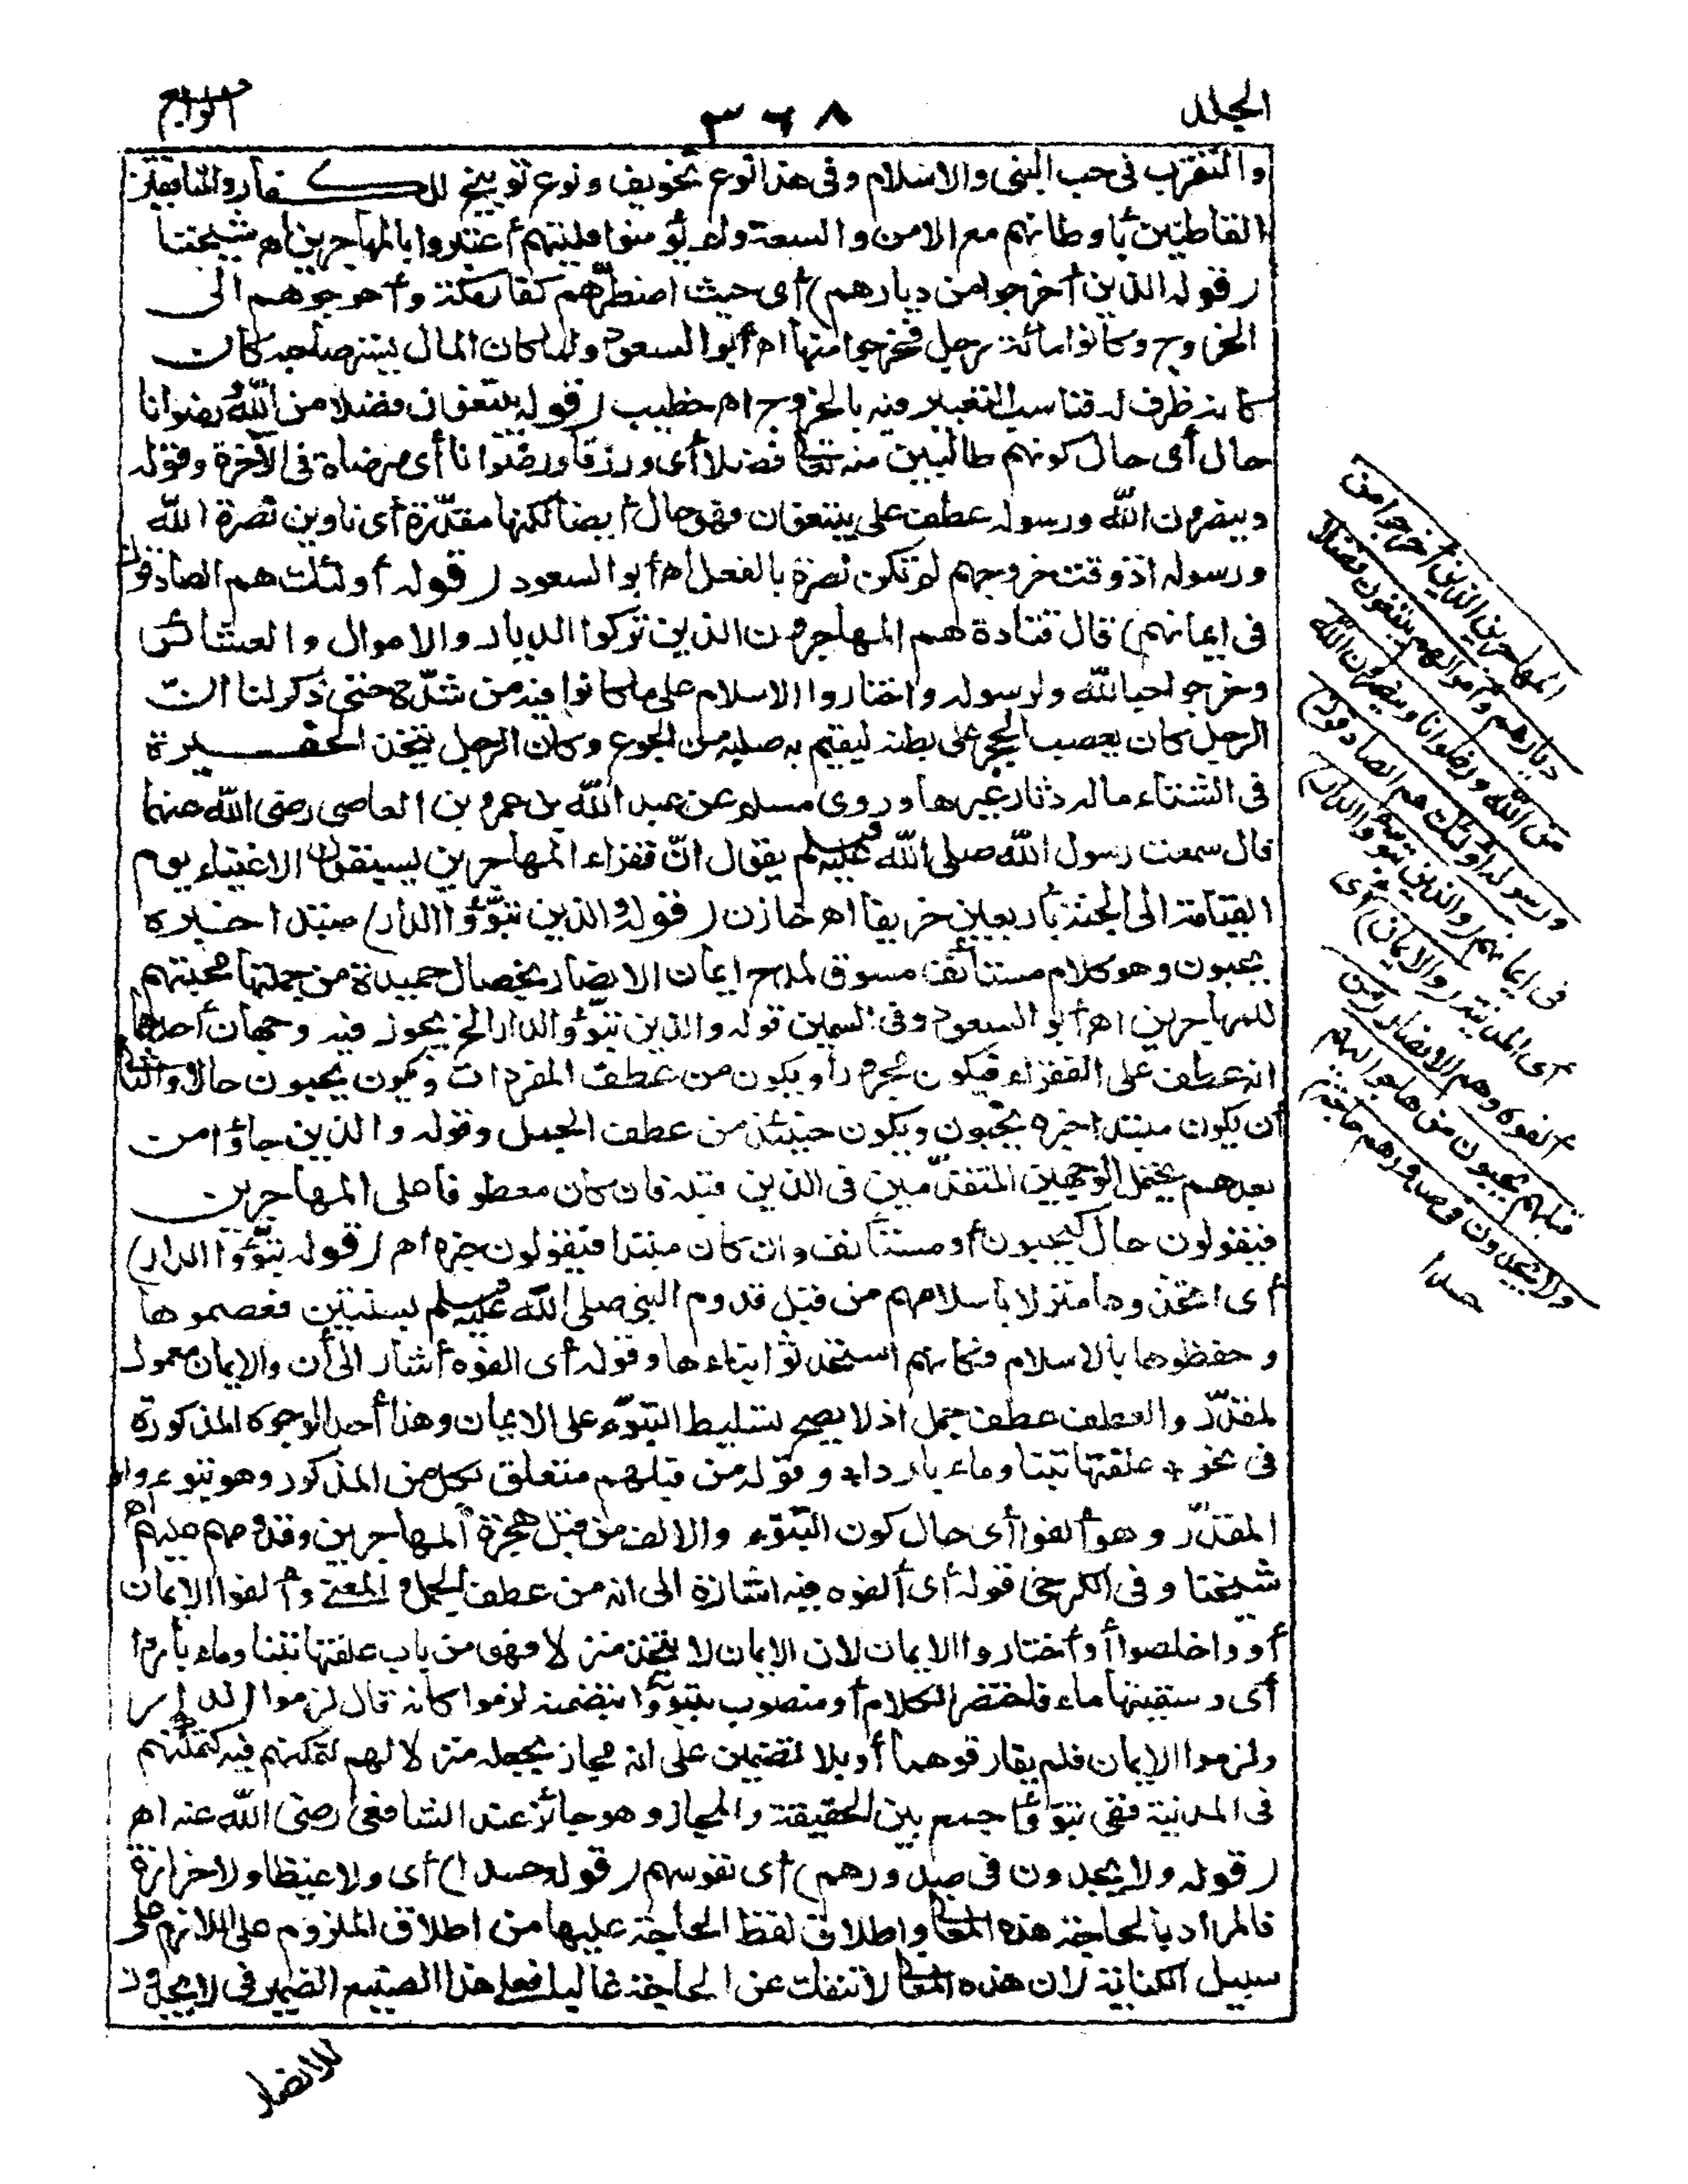 الجلد ٣٦٨ الرابع
والتقرب فى حب النبى والاسلام وفى هذا نوع تخويف ونوع توبيخ للكفار والمنافقين
القاطنين بأوطانهم مع الامن والسعة ولم يؤمنوا فليتهم أعتبروا بالمهاجرين اه شيخنا
(قوله الذين أخرجوا من ديارهم) أى حيث اضطرهم كفار مكة وأحوجوهم الى
الخروج وكانوا مائة رجل فخرجوا منها اه أبو السعود ولما كان المال يستر صاحبه كان
كأنه ظرف له فناسب التعبير فيه بالخروج اه خطيب (قوله يبتغون فضلا من الله ورضوانا
حال أى حال كونهم طالبين منه تعالى فضلا أى ورزقا ورضوانا أى مرضاة فى الآخرة وقوله
وينصرون الله ورسوله عطف على يبتغون فهو حال أيضا لكنها مقدرة أى ناوين نصرة الله
ورسوله اذ وقت خروجهم لم تكن نصرة بالفعل اه أبو السعود (قوله أولئك هم الصادقون
فى ايمانهم) قال قتادة هم المهاجرون الذين تركوا الديار والاموال والعشائر
وخرجوا حبا لله ولرسوله واختاروا الاسلام على ما كانوا فيه من شدة حتى ذكر لنا ان
الرجل كان يعصب الحجر على بطنه ليقيم به صلبه من الجوع وكان الرجل يتخذ الحفيرة
فى الشتاء ماله دثار غيرها وروى مسلم عن عبد الله بن عمرو بن العاصى رضى الله عنهما
قال سمعت رسول الله صلى الله عليه وسلم يقول انّ فقراء المهاجرين يسبقون الاغنياء يوم
القيامة الى الجنة بأربعين خريفا اه خازن (قوله والذين تبوّؤا الدار) مبتدا خبره
يحبون وهو كلام مستأنف مسوق لمدح ايمان الانصار بخصال حميدة من جملتها محبتهم
للمهاجرين اه أبو السعود وفى السمين قوله والذين تبوّؤا الدار الخ يجوز فيه وجهان أحدهما
انه عطف على الفقراء فيكون مجرورا ويكون من عطف المفردات ويكون يحبون حالا والثانى
أن يكون مبتدا خبره يحبون ويكون حينئذ من عطف الجمل وقوله والذين جاؤا من
بعدهم يحتمل الوجهين المتقدّمين فى الذين قبله فان كان معطوفا على المهاجرين
فيقولون حال كيحبون أو مستأنف وان كان مبتدا فيقولون خبره اه (قوله تبوّؤا الدار)
أى اتخذوها منزلا باسلامهم من قبل قدوم النبى صلى الله عليه وسلم بسنتين فعصموها
وحفظوها بالاسلام فكانهم استحدثوا بناءها وقوله أى الفوه أشار الى أن والايمان معمول
لمقدّر والعطف عطف جمل اذ لا يصح تسليط التبوّء على الايمان وهذا أحد الوجوه المذكورة
فى نحو * علفتها تبنا وماء باردا * وقوله من قبلهم متعلق بكل من المذكور وهو تبوء و
المقدّر وهو ألفوا أى حال كون التبوّء والالف من قبل هجرة المهاجرين وقدومهم عليهم اه
شيخنا وفى الكرخى قوله أى ألفوه فيه اشارة الى انه من عطف الجمل و المعنى وألفوا الايمان
أو واخلصوا أو واختاروا الايمان لان الايمان لا يتخذ منزلا فهو من باب علفتها تبنا وماء باردا
أى وسقيتها ماء فاختصر الكلام أو منصوب بتبوّؤا بتضمنه لزموا كأنه قال لزموا الدار
ولزموا الايمان فلم يفارقوهما أو بلا تضمين على انه مجاز بجعله منزلا لهم لتمكنهم فيه كتمكنهم
فى المدينة ففى تبوّؤا جمع بين الحقيقة والمجاز وهو جائز عند الشافعى رضى الله عنه اه
(قوله ولا يجدون فى صدورهم) أى نفوسهم (قوله حسدا) أى ولا غيظا ولا حزازة
فالمراد بالحاجة هذه المعانى واطلاق لفظ الحاجة عليها من اطلاق الملزوم على اللازم على
سبيل الكناية لان هذه المعانى لا تنفك عن الحاجة غالبا فعلى هذا الصنيع الضمير فى لا يجدون
للانصار
المهاجرين الذين أخرجوا من
ديارهم وأموالهم يبتغون فضلا
من الله ورضوانا وينصرون الله
ورسوله أولئك هم الصادقون)
فى ايمانهم (والذين تبوّؤا الدار)
أى المدينة (والايمان) أى
ألفوه وهم الانصار (من
قبلهم يحبون من هاجر اليهم
ولا يجدون فى صدورهم حاجة)
حسدا